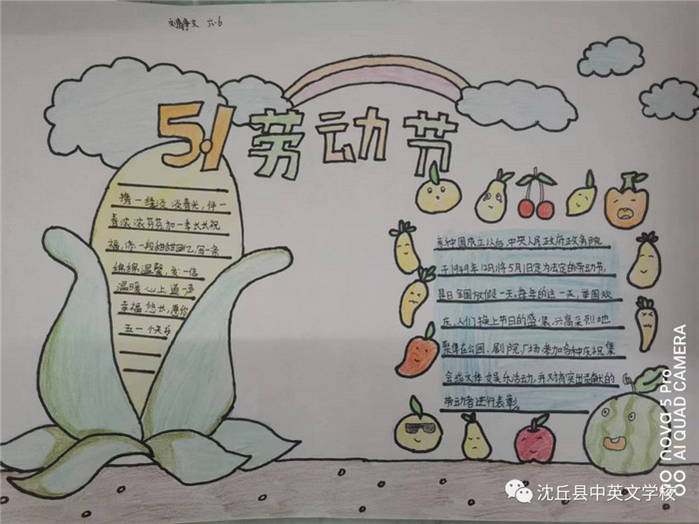 六.6
5.1 劳动节
携一缕淡淡春光,伴一
春浓浓芬芳加一季长长祝
福,添一段甜甜回忆写一条
绵绵温馨,发一信
温暖心上,道一声
幸福悠长,愿你
五一个天乐
中国成立以后,中央人民政府政务院
于1949年12月将5月1日定为法定的劳动节,
是日全国放假一天,每年的这一天,举国欢
庆,人们换上节日的盛装,兴高采烈地
聚集在公园、剧院、广场,参加各种庆祝集
会或文体娱乐活动,并对有突出贡献的
劳动者进行表彰。
沈丘县中英文学校
nova 5 Pro
AI QUAD CAMERA